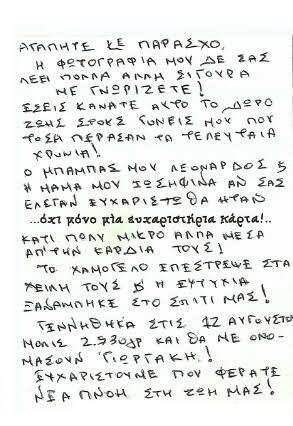 ΑΓΑΠΗΤΕ ΚΕ ΠΑΡΑΣΧΟ,
Η ΦΩΤΟΓΡΑΦΙΑ ΜΟΥ ΔΕ ΣΑΣ
ΛΕΕΙ ΠΟΛΛΑ ΑΛΛΗ ΣΙΓΟΥΡΑ
ΜΕ ΓΝΩΡΙΖΕΤΕ!
ΕΣΕΙΣ ΚΑΝΑΤΕ ΑΥΤΟ ΤΟ ΔΩΡΟ
ΖΩΗΣ ΣΤΟΥΣ ΓΟΝΕΙΣ ΜΟΥ ΠΟΥ
ΤΟΣΑ ΠΕΡΑΣΑΝ ΤΑ ΤΕΛΕΥΤΑΙΑ
ΧΡΟΝΙΑ!
Ο ΜΠΑΜΠΑΣ ΜΟΥ ΛΕΟΝΑΡΔΟΣ &
Η ΜΑΜΑ ΜΟΥ ΙΩΣΗΦΙΝΑ ΑΝ ΣΑΣ
ΕΛΕΓΑΝ ΕΥΧΑΡΙΣΤΩ ΘΑ ΗΤΑΝ
...όχι μόνο μία ευχαριστήρια κάρτα!..
ΚΑΤΙ ΠΟΛΥ ΜΙΚΡΟ ΑΛΛΑ ΜΕΣΑ
ΑΠ'ΤΗΝ ΚΑΡΔΙΑ ΤΟΥΣ!
ΤΟ ΧΑΜΟΓΕΛΟ ΕΠΕΣΤΡΕΨΕ ΣΤΑ
ΧΕΙΛΗ ΤΟΥΣ & Η ΕΥΤΥΧΙΑ
ΞΑΝΑΜΠΗΚΕ ΣΤΟ ΣΠΙΤΙ ΜΑΣ!
ΓΕΝΝΗΘΗΚΑ ΣΤΙΣ 12 ΑΥΓΟΥΣΤΟ
ΜΟΛΙΣ 2.530γρ ΚΑΙ ΘΑ ΜΕ ΟΝΟ-
ΜΑΣΟΥΝ ΓΙΩΡΓΑΚΗ!
ΕΥΧΑΡΙΣΤΟΥΜΕ ΠΟΥ ΦΕΡΑΤΕ
ΝΕΑ ΠΝΟΗ ΣΤΗ ΖΩΗ ΜΑΣ!